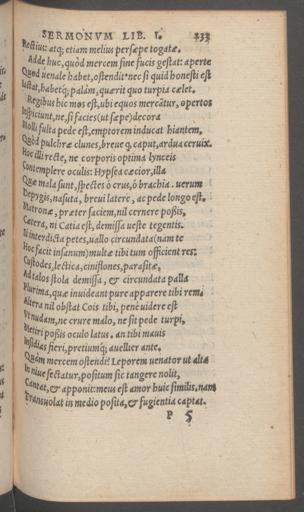 SERMONVM LIB. I. 233
Rectius: atq; etiam melius persæpe togatæ.
Adde huc, quòd mercem sine fucis gestat: aperte
Quod uenale habet, ostendit: nec si quid honesti est
Iactat, habetq; palàm, quærit quo turpia cælet.
Regibus hic mos est, ubi equos mercãtur, opertos
Inspiciunt, ne, si facies (ut sæpe) decora
Molli fulta pede est, emptorem inducat hiantem,
Quòd pulchræ clunes, breue q. caput, ardua ceruix.
Hoc illi recte, ne corporis optima lynceis
Contemplere oculis: Hypsea cæcior, illa
Quæ mala sunt, spectes ò crus, ô brachia. uerum
Depygis, nasuta, breui latere, ac pede longo est.
Matronæ, præter faciem, nil cernere possis,
Cætera, ni Catia est, demissa ueste tegentis.
Si interdicta petes, uallo circundata (nam te
Hoc facit insanum) multæ tibi tum officient res:
Custodes, lectica, ciniflones, parasitæ,
Ad talos stola demissa, & circundata palla
Plurima, quæ inuideant pure apparere tibi rem.
Altera nil obstat Cois tibi, pene uidere est
Vt nudam, ne crure malo, ne sit pede turpi,
Metiri possis oculo latus. an tibi mauis
Insidias fieri, pretiumq; auellier ante,
Quàm mercem ostendi? Leporem uenator ut alta
In niue sectatur, positum sic tangere nolit,
Cantat, & apponit: meus est amor huic similis, nam
Transuolat in medio posita, & fugientia captat.
P 5